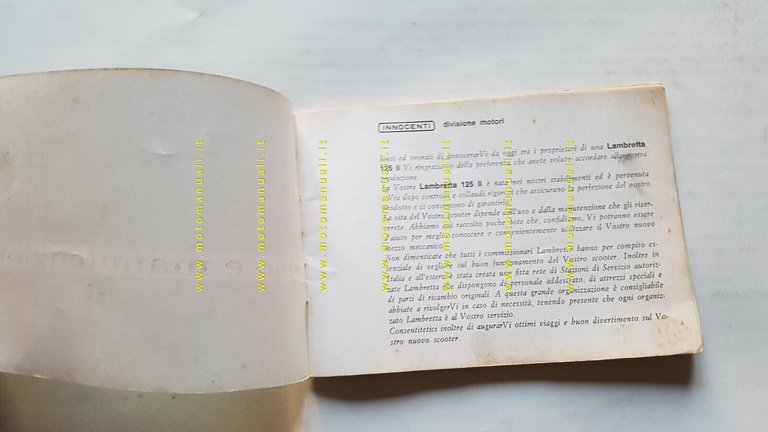 INNOCENTI divisione motori
Lieti ed onorati di annoverarVi da oggi tra i proprietari di una Lambretta
125 li Vi ringraziamo della preferenza che avete voluto accordare alla nostra
produzione.
La Vostra Lambretta 125 li è nata nei nostri stabilimenti ed è pervenuta
a Voi dopo controlli e collaudi rigorosi che assicurano la perfezione del nostro
prodotto e ci consentono di garantirlo.
La vita del Vostro scooter dipende dall'uso e dalla manutenzione che gli riser-
verete. Abbiamo qui raccolto poche note che, confidiamo, Vi potranno essere
d'aiuto per meglio conoscere e convenientemente utilizzare il Vostro nuovo
mezzo meccanico.
Non dimenticate che tutti i commissionari Lambretta hanno per compito es-
senziale di vegliare sul buon funzionamento del Vostro scooter. Inoltre in
Italia e all'estero è stata creata una fitta rete di Stazioni di Servizio autoriz-
zate Lambretta che dispongono di personale addestrato, di attrezzi speciali e
di parti di ricambio originali. A questa grande organizzazione è consigliabile
abbiate a rivolgerVi in caso di necessità, tenendo presente che ogni organiz-
zato Lambretta è al Vostro servizio.
Consentiteci inoltre di augurarVi ottimi viaggi e buon divertimento sul Vo-
stro nuovo scooter.
www.motomanuali.it
www.motomanuali.it
www.motomanuali.it
www.motomanuali.it
www.motomanuali.it
www.motomanuali.it
www.motomanuali.it